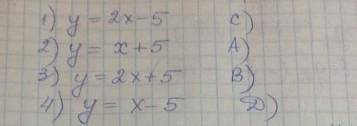 1) y = 2x-5 C)
2) y = x+5 A)
3) y = 2x+5 B)
4) y = x-5 D)